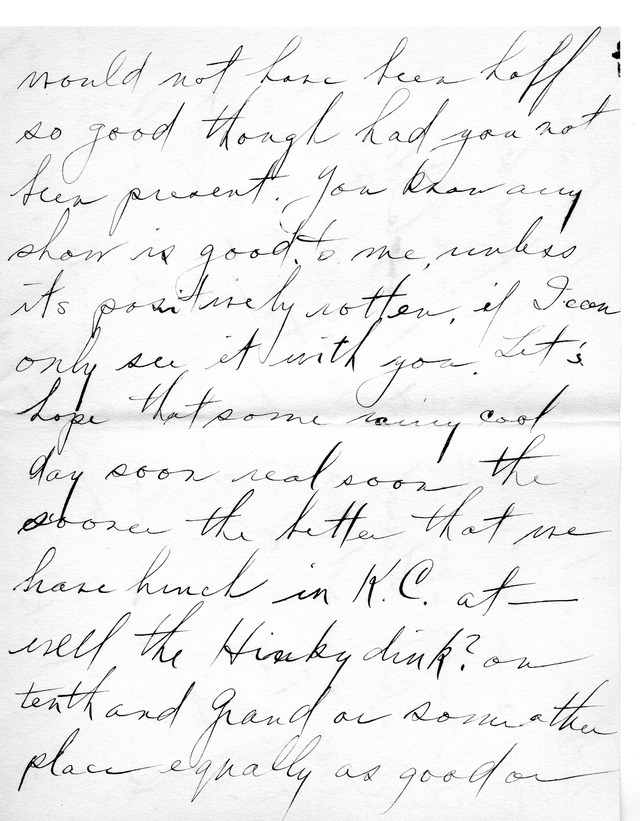 would not have been half
so good though had you not
been present. You know any
show is good to me, unless
its positively rotten, if I can
only see it with you. Let's
hope that some rainy cool
day soon real soon the
sooner the better that we
have lunch in K.C. at—
well the Hinkydink? on
tenth and Grand or some other
place equally as good or